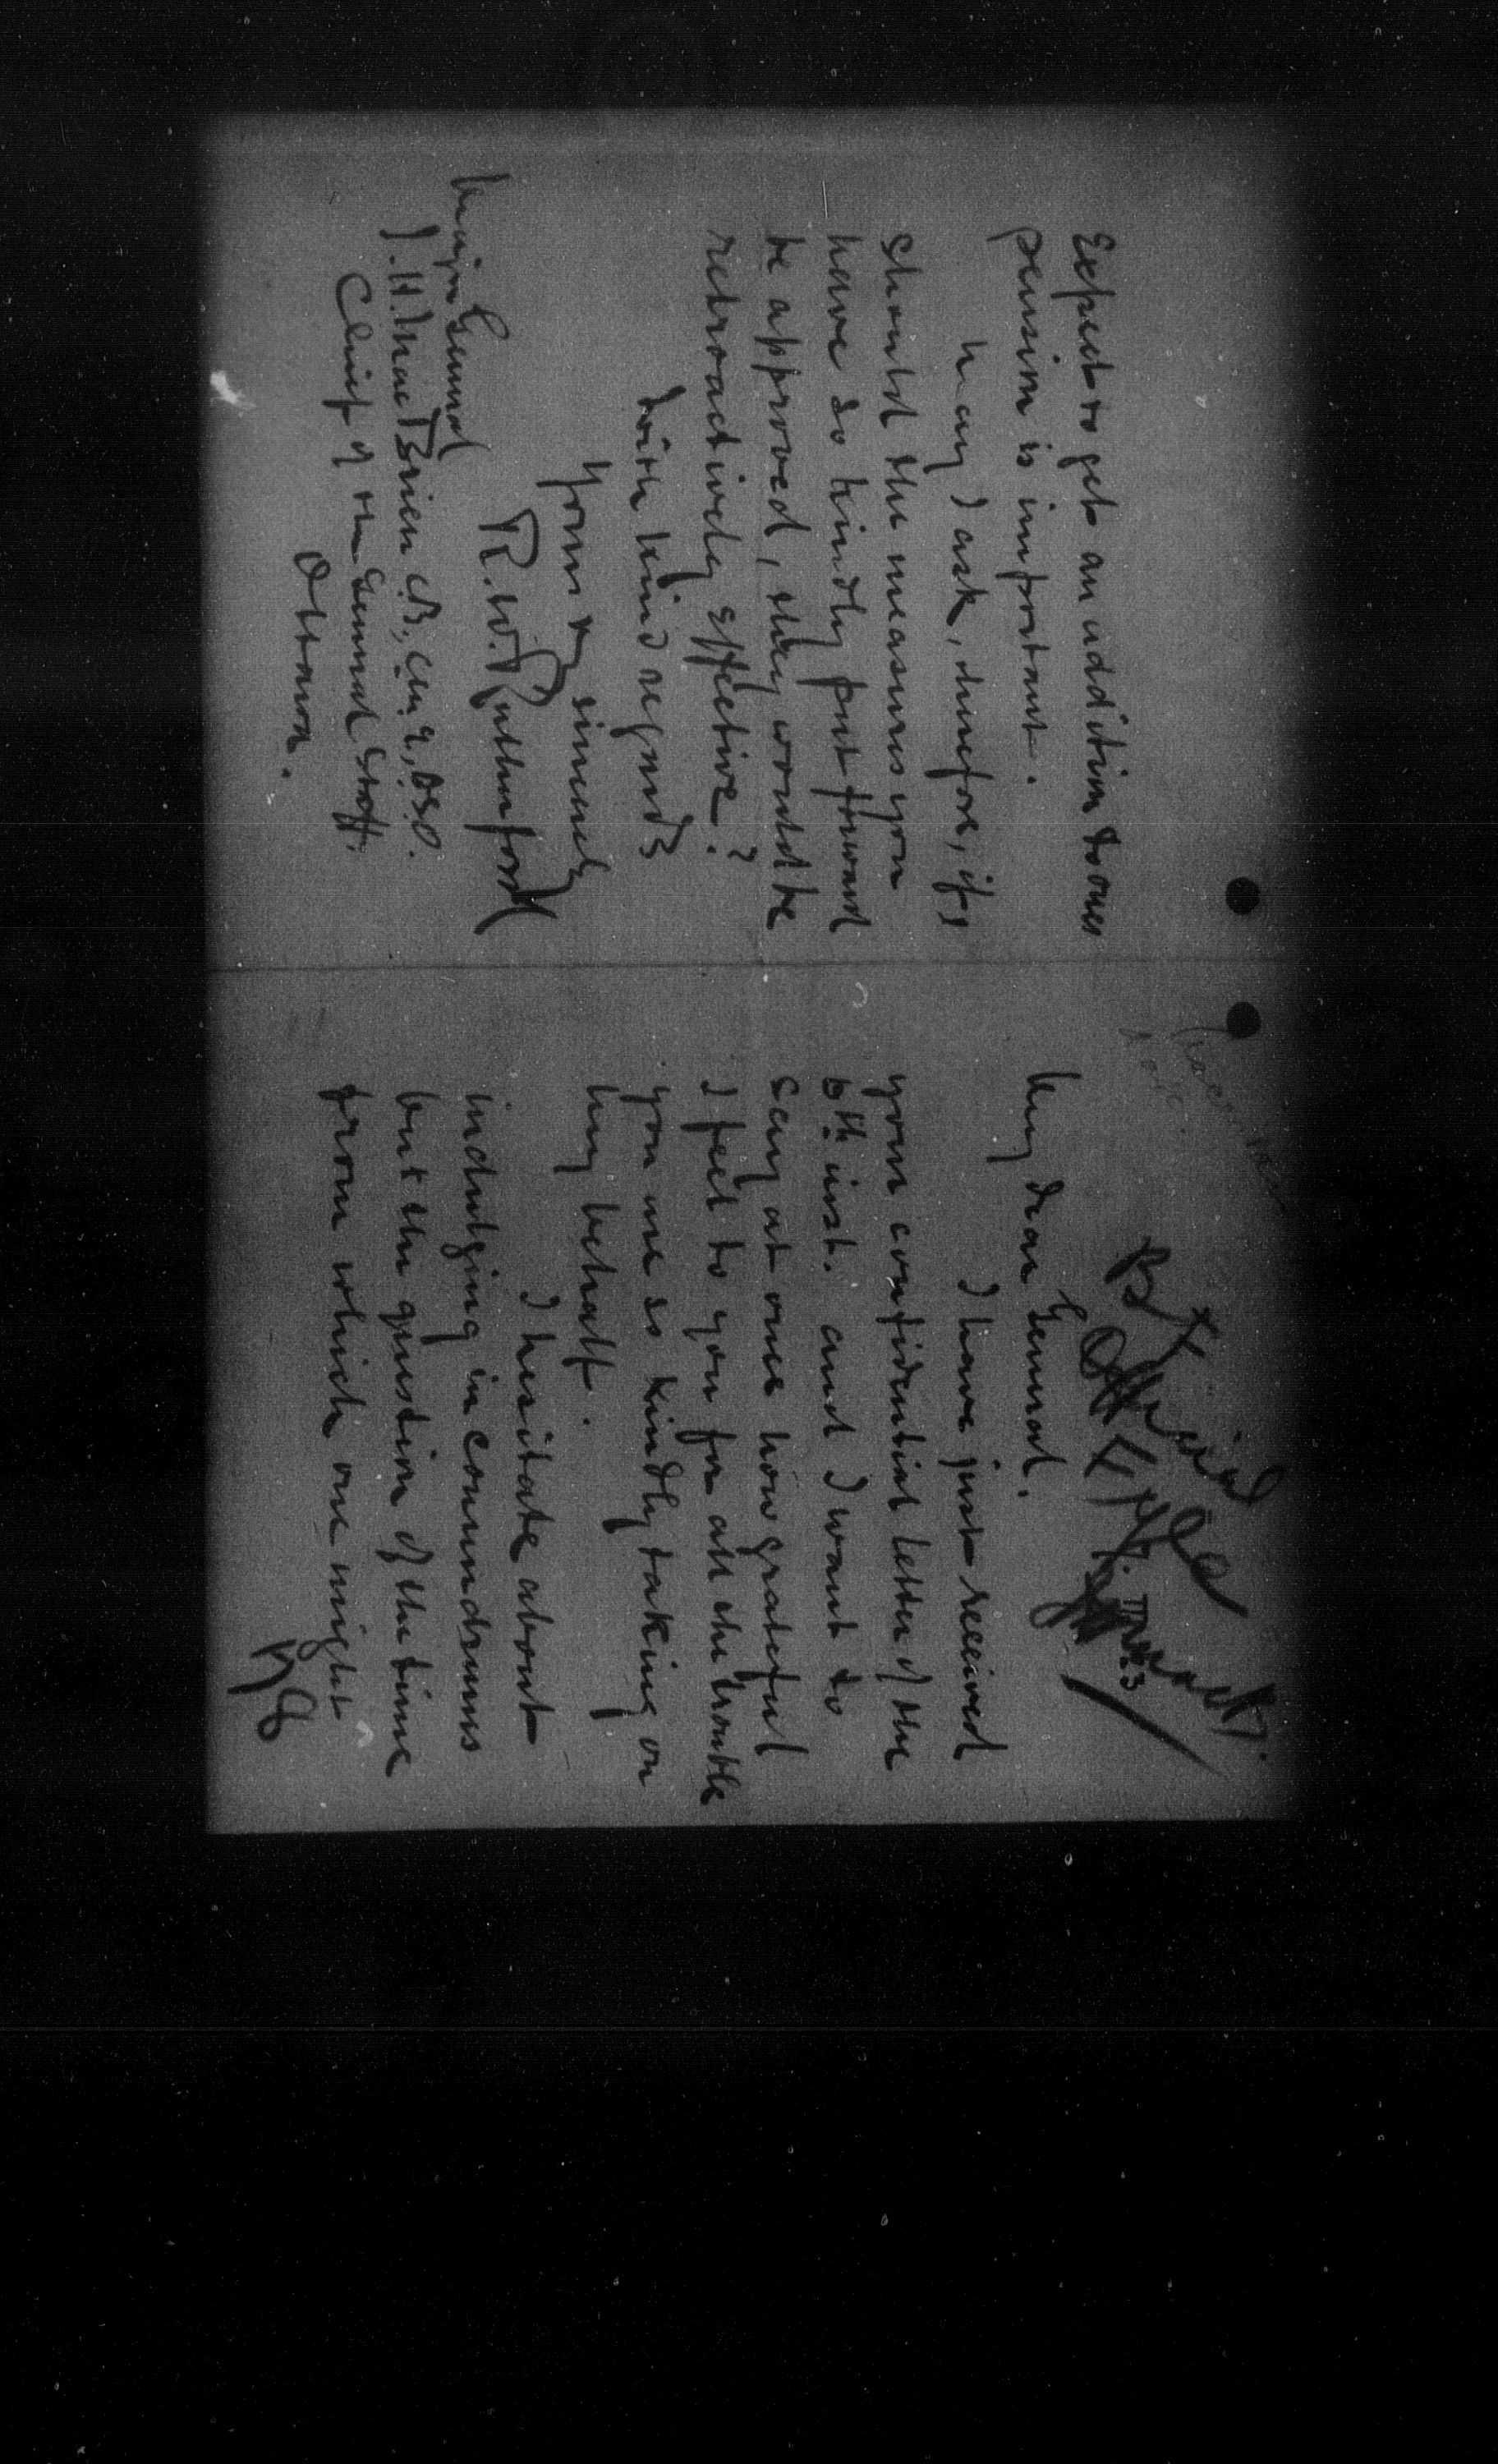 My dear General.
I have just received
your confidential letter of the
6th inst. and I want to
say at once how grateful
I feel to you for all the trouble
you are so kindly taking on
my behalf.
I hesitate about
indulging in conundrums
but the question of the time
from which one might
Expect to get an addition to ones
pension is important.
May I ask, therefore, if,
should the measures you
have so kindly put forward
be approved, they would be
retroactively effective?
With kind regards
Yours sincerely
R.W. Rutherford
Major General
J.H. MacBrien CB, CMG, DSO.
Chief of the General Staff,
Ottawa.